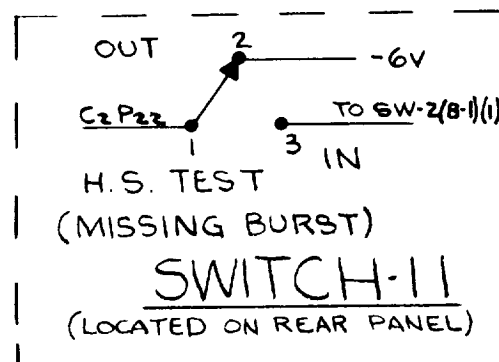 OUT
2
-6V
C2 P22
TO SW-2(B-1)(1)
1
3
IN
H.S. TEST
(MISSING BURST)
SWITCH-11
(LOCATED ON REAR PANEL)